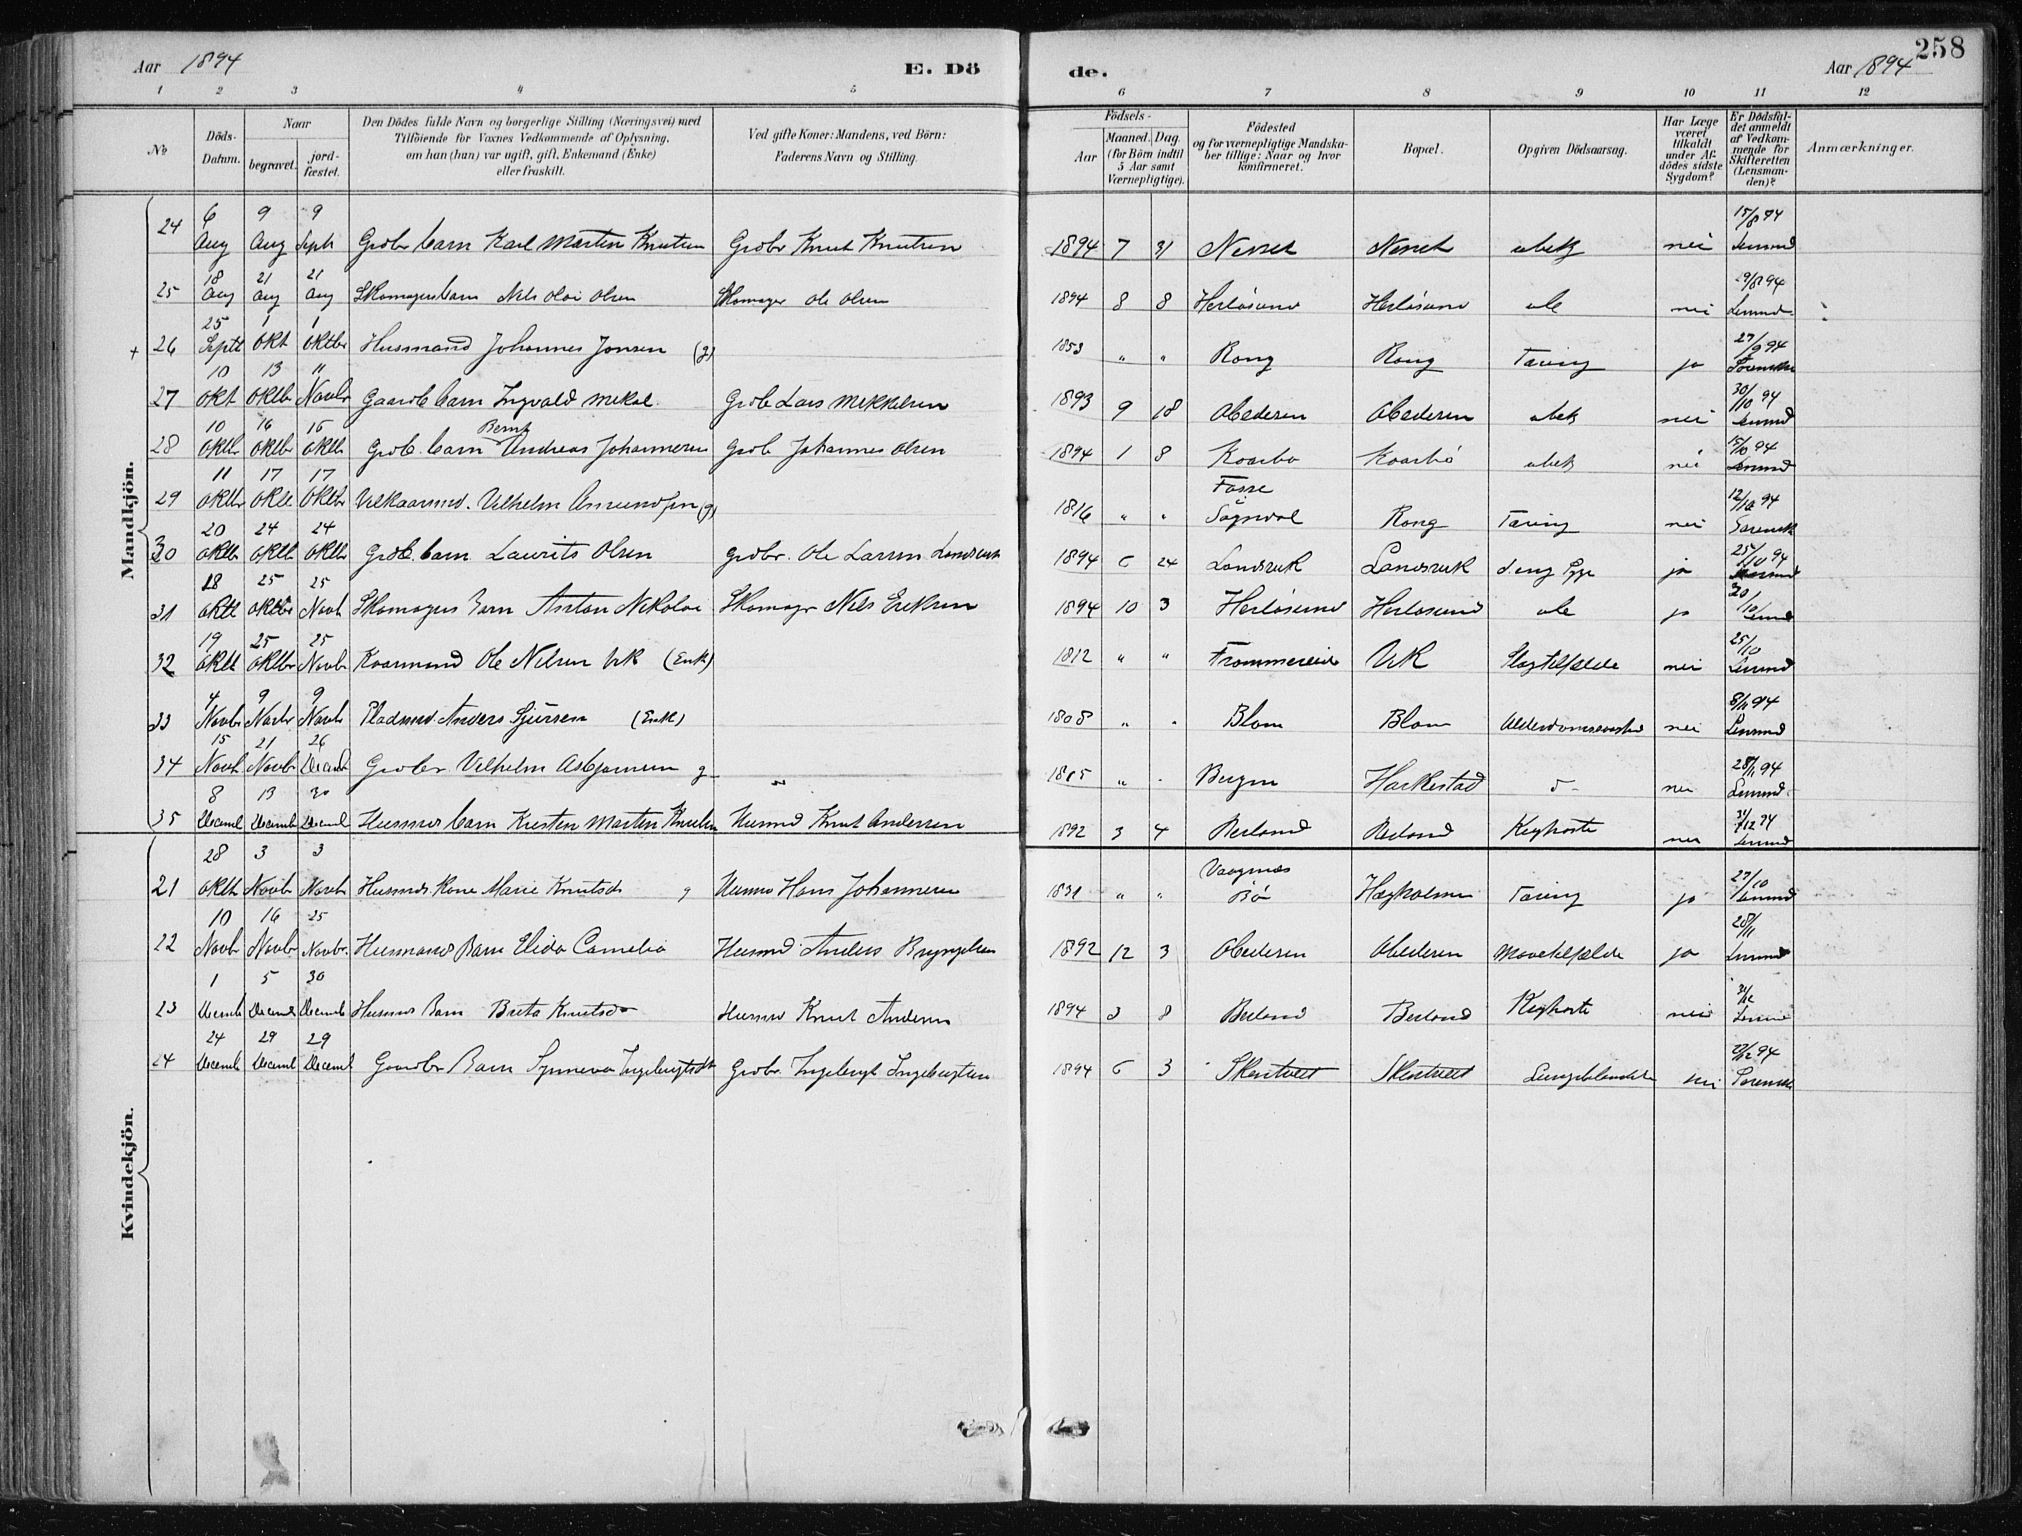 Aar 1894 E. Dö de. Aar 1894 258
1 2 3 4 5 6 7 8 9 10 11 12
No
Döds-Datum.
Naar
begravet.
jord-fæstet.
Den Dödes fulde Navn og borgerlige Stilling (Næringsvei) med
Tilföiende for Voxnes Vedkommende af Oplysning,
om han (hun) var ugift, gift, Enkemand (Enke)
eller fraskilt.
Ved gifte Koner: Mandens, ved Börn:
Faderens Navn og Stilling.
Födsels-
Aar
Maaned. Dag.
(for Börn indtil
5 Aar samt
Værnepligtige).
Födested
og for værnepligtige Mandska-
ber tillige: Naar og hvor
konfirmeret.
Bopæl.
Opgiven Dödsaarsag.
Har Læge
været
tilkaldt
under Af-
dödes sidste
Sygdom?
Er Dödsfal-
det anmeldt
af Vedkom-
mende for
Skifteretten
(Lensman-
den)?
Anmærkninger.
Mandkjön.
24 6 Aug 9 Aug 9 Septb Grdbr barn Karl Martin Knutsen Grdbr Knut Knutsen 1894 7 31 Nesset Nesset ubek nei 15/8 94 Lensmd
25 18 Aug 21 Aug 21 Aug Skomagers barn Nils Olai Olsen Skomager Ole Olsen 1894 8 8 Herløsund Herløsund nei 29/8 94 Lensmd
+ 26 25 Septb 1 Okt 1 Oktbr Husmand Johannes Jonsen (g) 1853 " " Rong Rong Tæring ja 27/9 94
27 10 Okt 13 Oktbr 11 Novbr Gaardb barn Ingvald Mikal Grdb Lars Mikkelsen 1893 9 18 ubek nei 30/10 94 Lensmd
28 10 Oktbr 16 Oktbr 16 Oktb Grdb. barn Bernt Andreas Johannesen Grdb Johannes Olsen 1894 1 8 Kaarbø Kaarbø ubek nei 15/10 94 Lensmd
29 11 Oktbr 17 Oktb 17 Oktbr Vilkaarsmd. Vilhelm Amundsen (g) 1816 " " Fosse Sogndal Rong Tæring nei 12/10 94
30 20 Oktbr 24 Oktb 24 Oktb Grdb. barn Laurits Olsen Grdbr. Ole Larsen Landsvik 1894 6 24 Landsvik Landsvik ja 25/10 94
31 18 Oktb 25 Oktbr 25 Novb Skomagers Barn Anton Nikolai Skomagr Nils Eriksen 1894 10 3 Herløsund Herløsund ja 20/10 Lensmd
32 19 Oktb 25 Oktbr 25 Novb Kaarmand Ole Nilsen Vik (Enk) 1812 " " Frommereide Vik Slagtilfælde nei 25/10 Lensmd
33 4 Novbr 9 Novbr 9 Novb Pladsmd. Anders Sjursen (Enk) 1808 " " Blom Blom Alderdomssvaghed nei 8/11 94 Lensmd
34 15 Novb 21 Novbr 26 Decemb Grdbr. Vilhelm Asbjørnsen g " 1815 " " Bergen Harkestad nei 28/11 94 Lensmd.
35 8 Decemb 13 Decemb 30 Decemb Husmds barn Kristen Martin Knutsen Husmd Knut Andersen 1892 3 4 Berland Berland Kighoste nei 31/12 94 Lensmd
Kvindekjön.
21 28 Oktb 3 Novbr 3 Novbr Husmds kone Marie Knutsdr g Husmd Hans Johannesen 1831 " " Vaagnæs Bø Hægholmen Tæring ja 27/10 Lensmd
22 10 Novb 16 Novbr 25 Novbr. Husmands Barn Elida Camelia Husmd Anders Brynjelsen 1892 12 3 Mavetilfælde ja 28/11 Lensmd
23 1 Decemb 5 Decemb 30 Decemb Husmds Barn Brita Knutsdr Husmd Knut Andersen 1894 3 8 Berland Berland Kighoste nei 31/12
24 24 Decemb 29 Decemb 29 Decemb Gaardbr Barn Synneva Ingebrigtsdtr Grdbr. Ingebrigt Ingebrigtsen 1894 6 3 Skentveit Skentveit nei 27/12 94